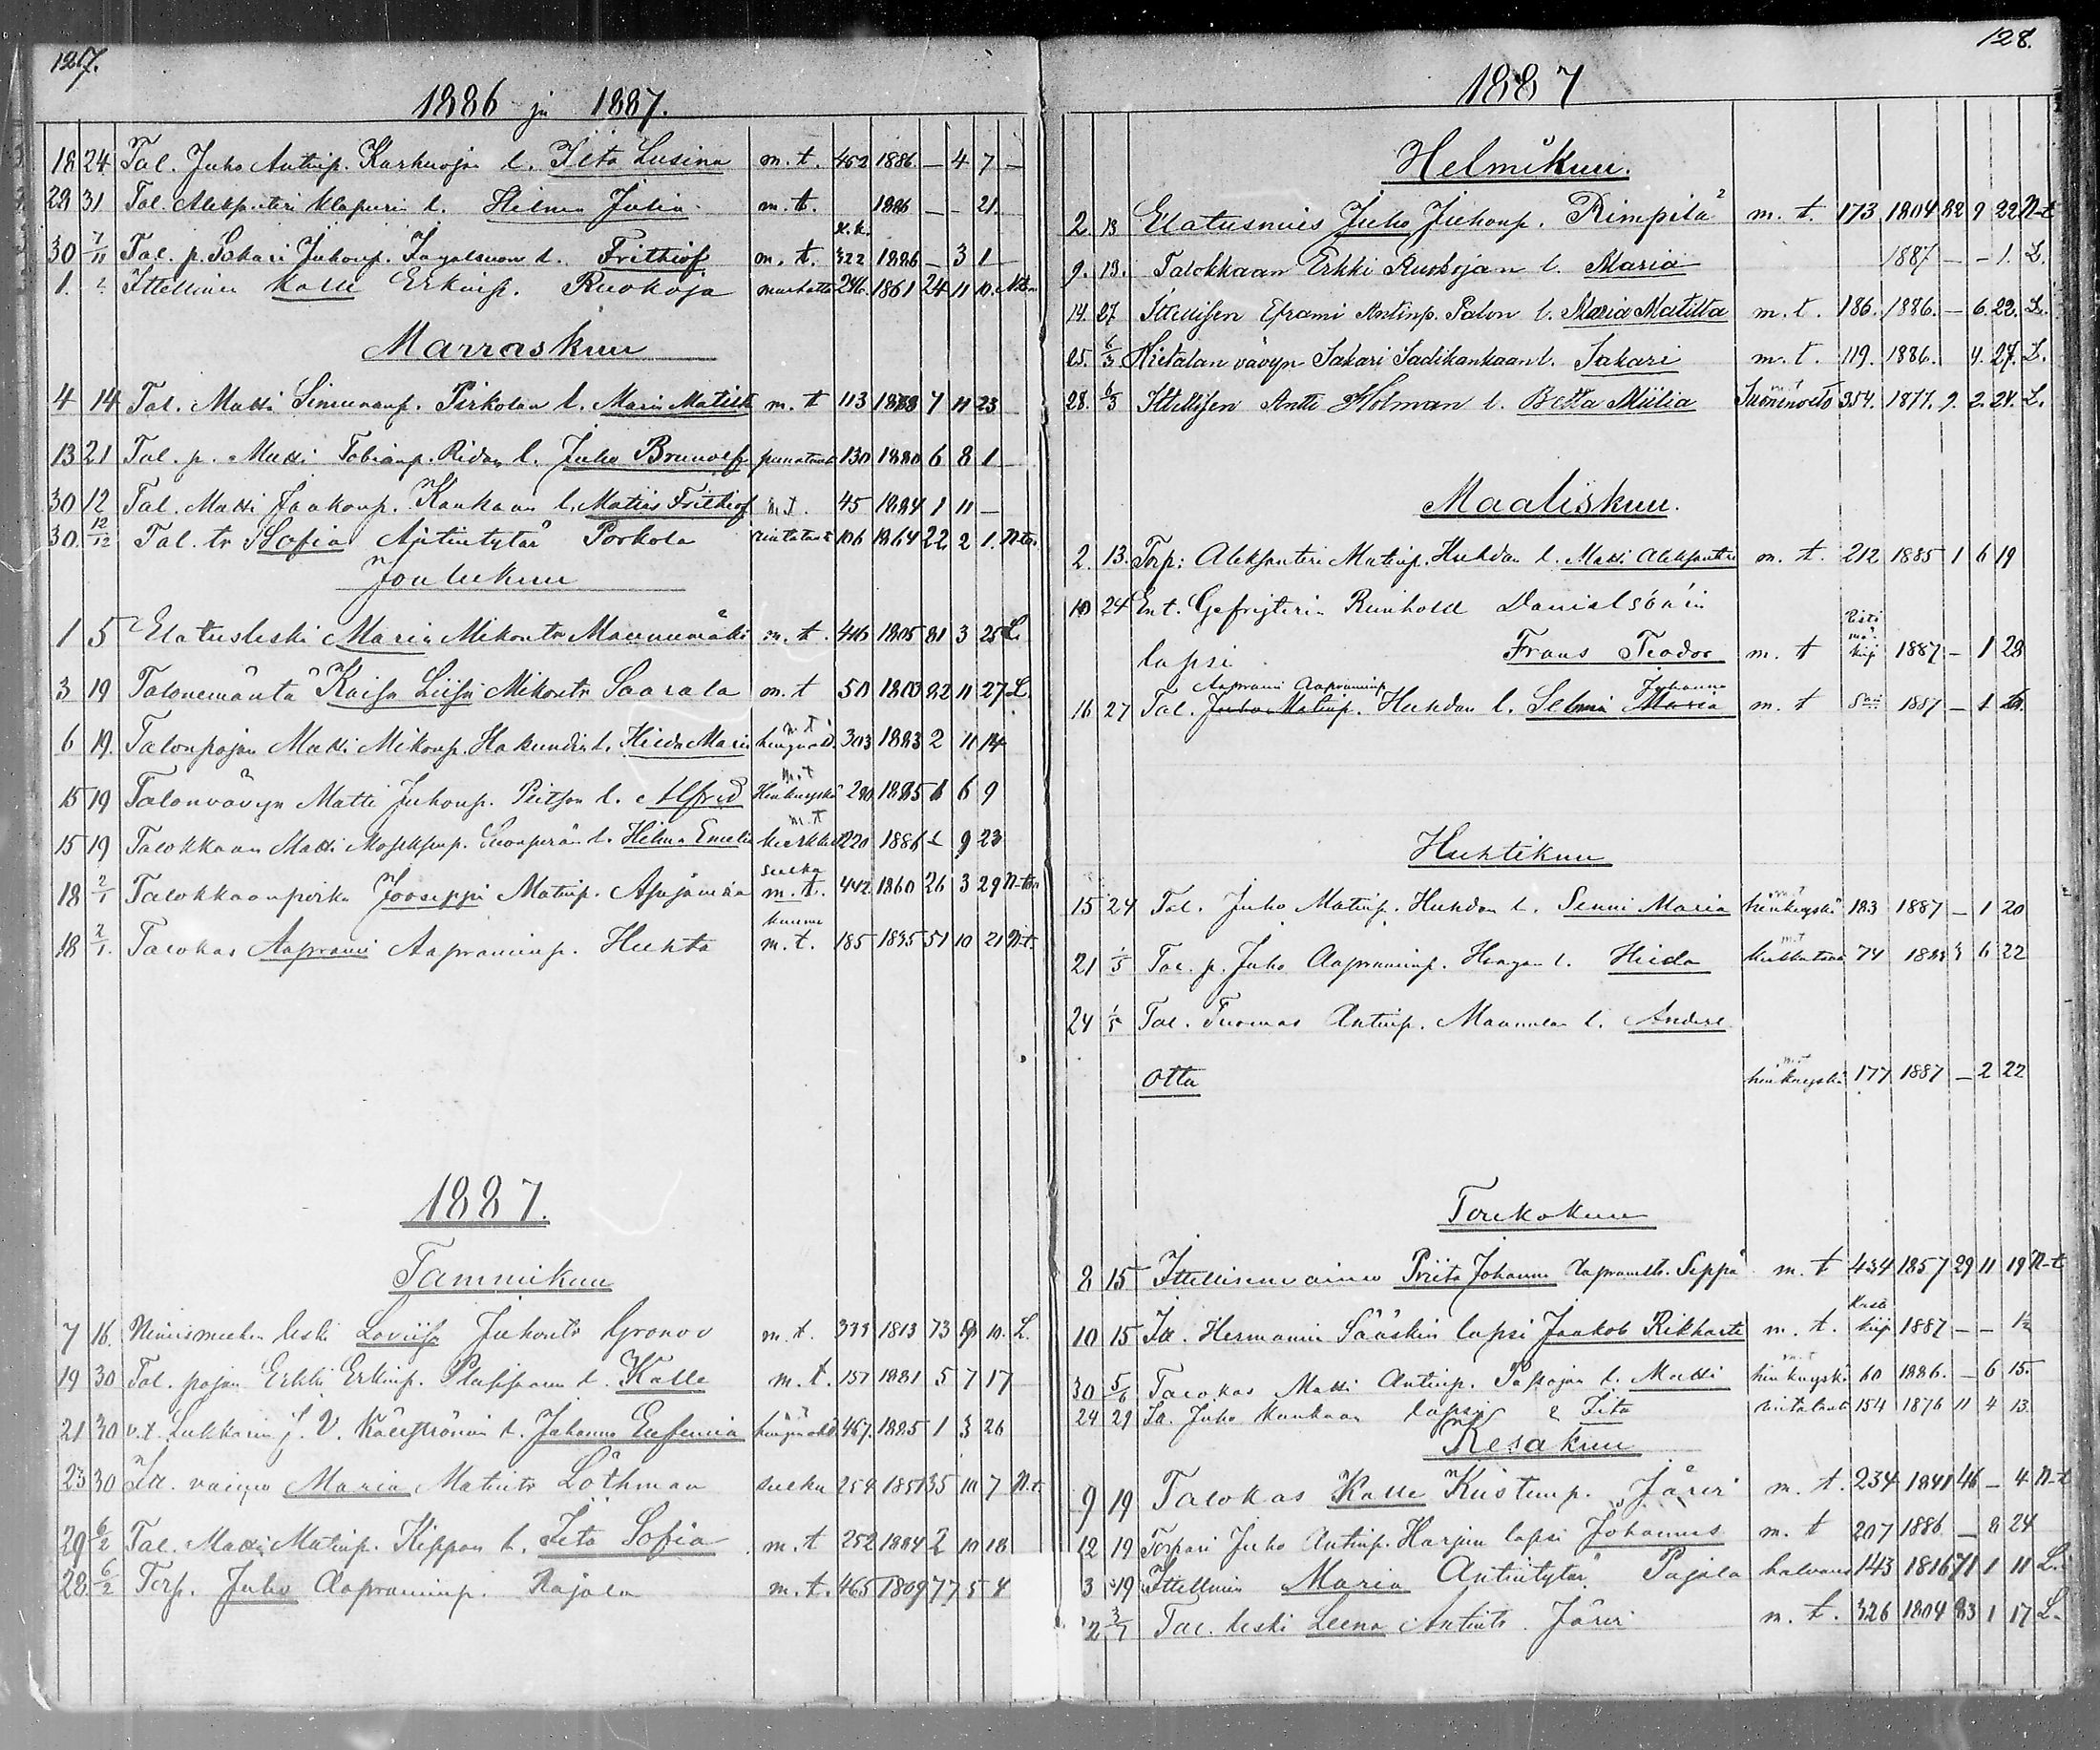 127.
1886 ja 1887.
18 24 Tal. Juho Antinp. Karhuojan l. Iita Lusina m. t. 452 1886 — 4 7 —
29 31 Tal. Aleksanteri Klapurin l. Hilma Julia m. t. 1886 — — 21.
30 7/11 Tal. p. Sakari Juhonp. l. Frithiof m. t. 322 1886 — 3 1
1. Itellinen Kalle Erkinp. Ruokoja 246. 1861 24 11 10.
Marraskuu
4 14 Tal. Matti Simunanp. Pirkolan l. Maria Matilta m. t 113 1878 7 11 23
13 21 Tal. p. Matti Tobianp. Ridan l. Juho Brunolf punatauti 130 1880 6 8 1
30 12 Tal. Matti Jaakonp. Kankaan l. Matias Frithiof m. t. 45 1884 1 11 —
30 12/12 Tal. tr Sofia Antintytär Porkola rintataut 106 1864 22 2 1. N-tön
Joulukuu
1 5 Elatusleski Maria Mikontr Maunumäki m. t. 446 1805 81 3 25 L.
3 19 Talonemäntä Kaisa Liisa Mikontr Saarala m. t 50 1803 82 11 27 L.
6 19. Talonpojan Matti Mikonp. Hakundin l. Hilda Maria m. t 303 1883 2 11 14
15 19 Talonvävyn Matti Juhonp. Peitson l. Alfred m. t Hinkuyskä 290 1885 1 6 9
15 19 Talokkaan Matti l. Hilma Emelia m. t 220 1886 — 9 23
18 2/1 Talokkaanpoika Jooseppi Matinp. Ahjänniä m. t. 442 1860 26 3 29 N-tön
18 2/1. Talokas Aaprami Aapraminp. Huhta kuume m. t. 185 1835 51 10 21 N-t.
1887.
Tammikuu
7 16. Nimismiehen leski Loviisa Juhontr Gronov m. t. 393 1813 73 10. L.
19 30 Tal. pojan Erkki Erkinp. l. Kalle m. t. 157 1881 5 7 17
21 30 v.t. Lukkarin J. V. Källströmin l. Johanna Eufemia 467. 1885 1 3 26
23 30 Itl. vaimo Maria Matintr Löthman 259 1851 35 10 7 N.t.
29 6/2 Tal. Matti Matinp. Kippon l. Iita Sofia m. t 252 1884 2 10 18
28. 6/2 Torp. Juho Aapraminp. Rajala m. t. 465 1809 77 5 4
128.
1887
Helmikuu.
2. 13 Elatusmies Juho Juhonp. Rimpilä m. t. 173 1804 82 9 22 N-t
9. 13. Talokkaan Erkki Ruokojan l. Maria 1887 — — 1. L.
14. 27. Itellisen Eframi Antinp. Palon l. Maria Matilta m. t. 186. 1886. — 6. 22. L.
25. 6/3 Hietalan vävyn Sakari Sadikankaan l. Sakari m. t. 119. 1886. 4. 27. L.
28. 6/3 Itellisen Antti Holman l. Betta Miilia m. t Suonenveto 354. 1877. 9. 2. 24. L.
Maaliskuu.
2. 13. Torp: Aleksanteri Matinp. Huhdan l. Matti Aleksanteri m. t. 212 1885 1 6 19
10 24 Ent. Gefrijterin Reinhold Danielsón'in
lapsi Frans Teodor m. t 1887 — 1 28
16 27 Tal. Aaprami Aapraminp. Juho Matinp. Huhdan l. Selma Johanna Maria m. t 1887 — 1
Huhtikuu
15 24 Tal. Juho Matinp. Huhdan l. Senni Maria m. t hinkuyskä 183 1887 — 1 20
21 1/5 Tal. p. Juho Aapraminp. Hangan l. Hilda m. t 74 1883 3 6 22
24 1/5 Tal. Tuomas Antinp. Maunulan l. Anders
Otto m. t hinkuyskä 177 1887 — 2 22
Toukokuu
8 15 Itellisenvaimo Priita Johanna Aapramtr. Seppä m. t 434 1857 29 11 19 N-t
10 15 Itl. Hermannin Sääskin lapsi Jaakob Rikhart m. t. 1887 — — 1/2
30 5/6 Talokas Matti Antinp. l. Matti m. t hinkuyskä 60 1886. — 6 15.
24 29 Itl. Juho Kankaan lapsi Iita rintataut 154 1876 11 4 13
Kesäkuu
9 19 Talokas Kalle Kustinp. Järvi m. t. 234 1841 46 — 4 N-t
12 19 Torpari Juho Antinp. Harjun lapsi Johannes m. t 207 1886 — 8 24
3 19 Itellinen Maria Antintytär Pajala halvaus 143 1816 71 1 11 L.
2 3/7 Tal. leski Leena Antintr. Järvi m. t. 326 1804 83 1 17 L.